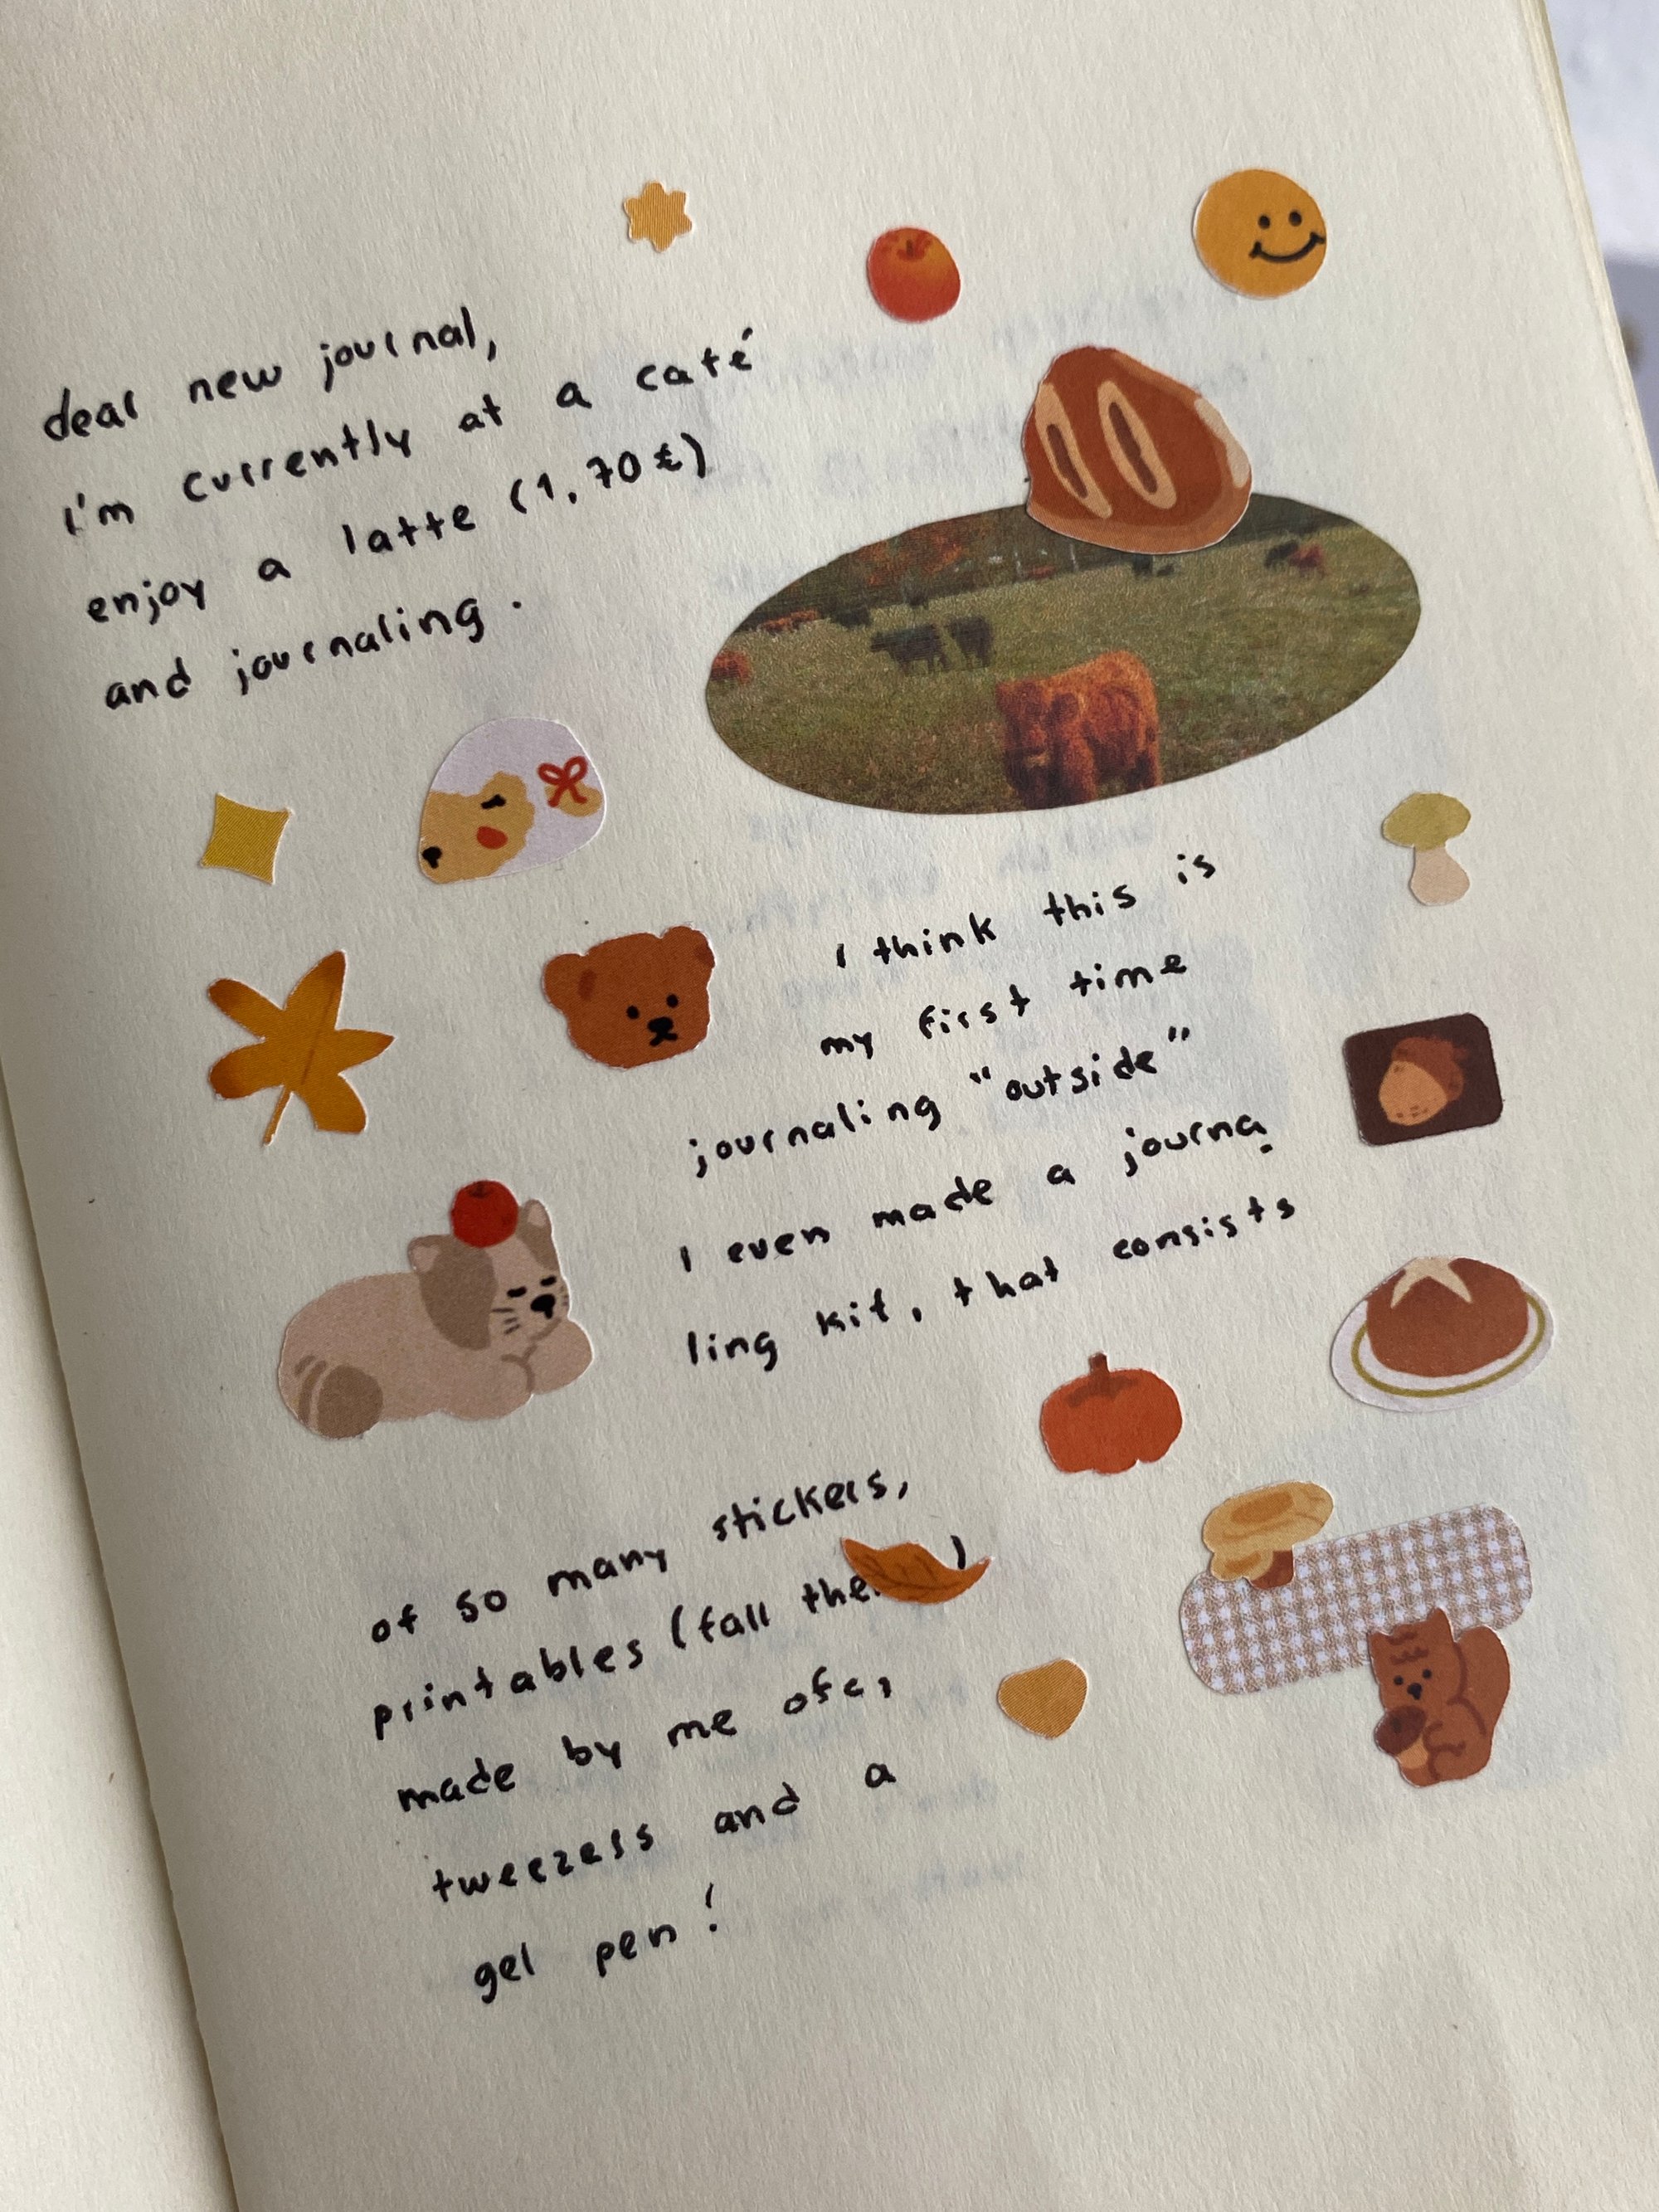 dear new journal,
i'm currently at a café
enjoy a latte (1,70€)
and journaling.
i think this is
my first time
journaling "outside"
i even made a journa-
ling kit, that consists
of so many stickers,
printables (fall the )
made by me ofc,
tweezers and a
gel pen!